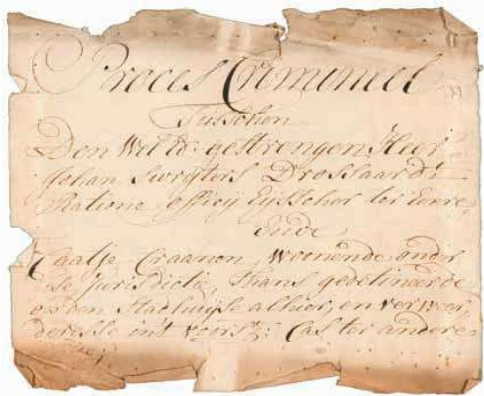 Proces Crimineel
Tusschen
Den Wel Ed: gestrengen Heer
Johan Swijters Drossaard
Ratione officij Eijsscher ter Eenre,
Ende
Caatje Craanen, woonende onder
de Jurisdictie, thans gedetineerde
op den Stadhuijse alhier, en verweer,
deresse in't voors: Cas ter andere